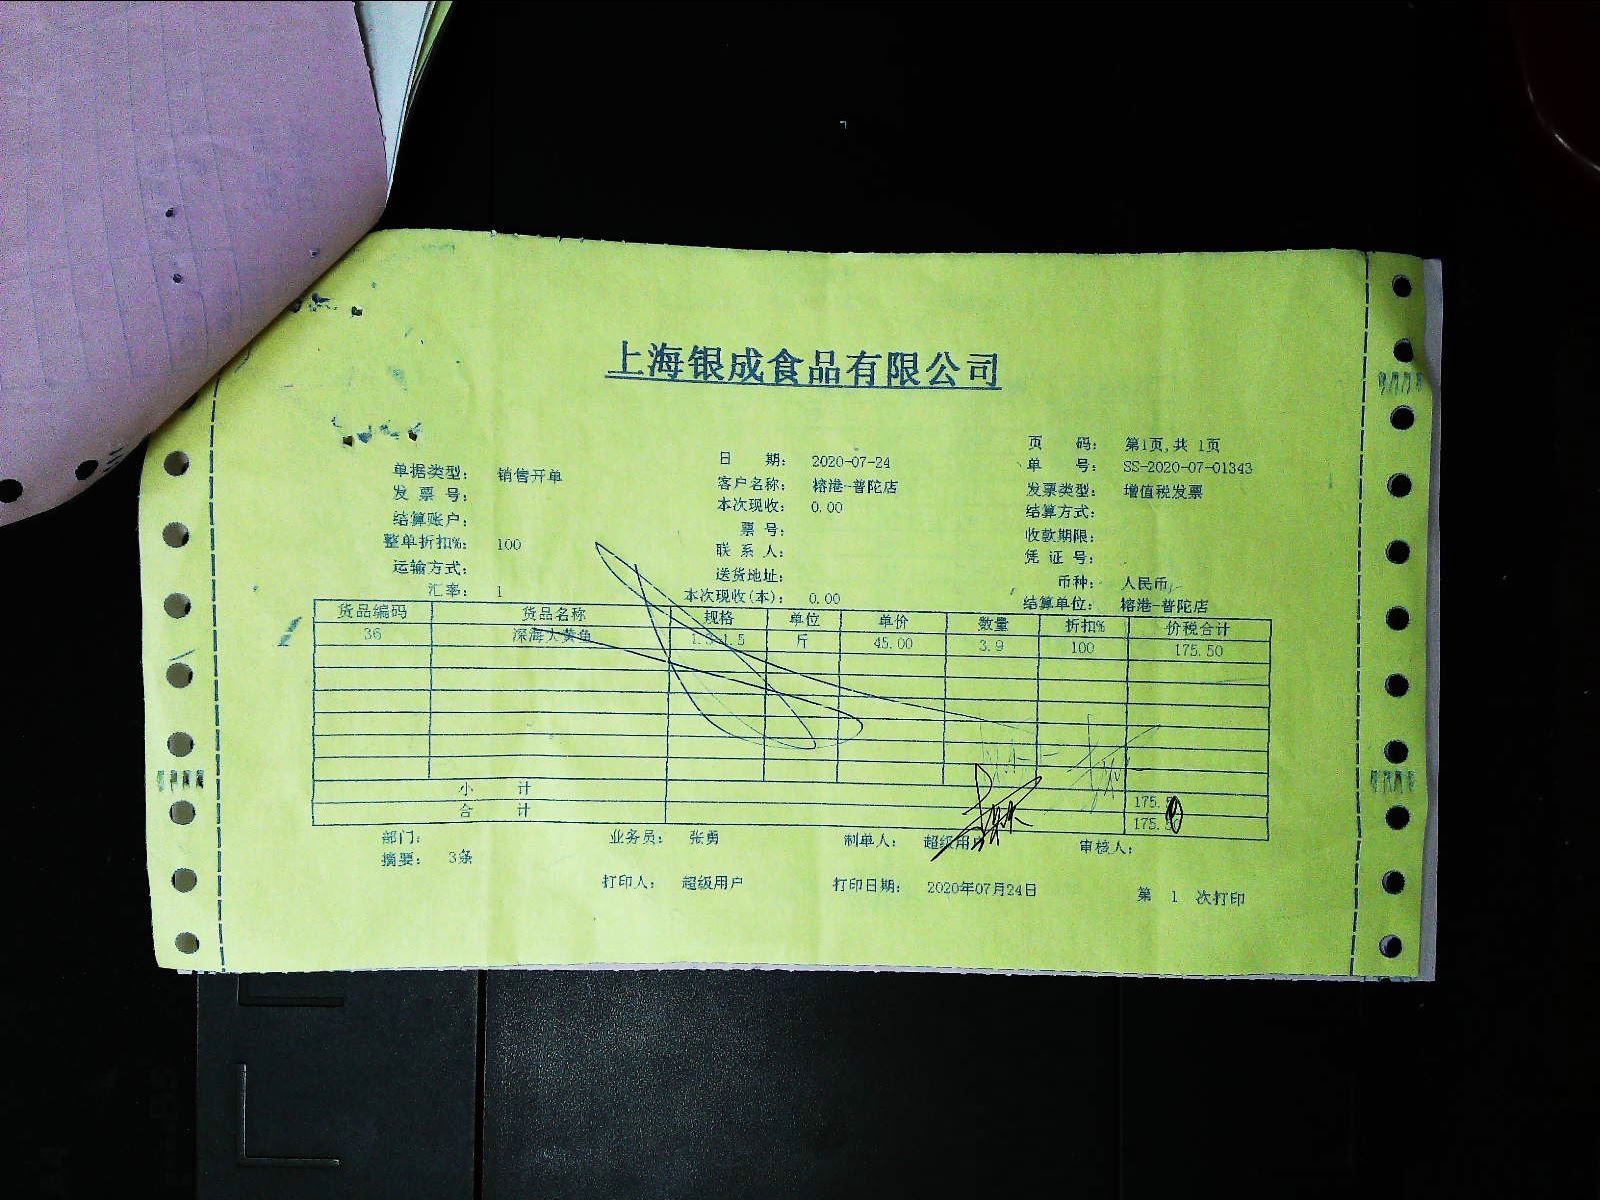 上海银成食品有限公司
页 码： 第1页,共 1页
单据类型： 销售开单 日 期： 2020-07-24 单 号： SS-2020-07-01343
发 票 号： 客户名称： 榕港-普陀店 发票类型： 增值税发票
结算账户： 本次现收： 0.00 结算方式：
整单折扣%： 100 票 号： 收款期限：
运输方式： 联 系 人： 凭 证 号：
送货地址： 币种： 人民币
汇率： 1 本次现收(本)： 0.00 结算单位： 榕港-普陀店
货品编码 货品名称 规格 单位 单价 数量 折扣% 价税合计
36 深海大黄鱼 1.3-1.5 斤 45.00 3.9 100 175.50
小 计 175.
合 计 175.
部门： 业务员： 张勇 制单人： 超级用 审核人：
摘要： 3条
打印人： 超级用户 打印日期： 2020年07月24日 第 1 次打印